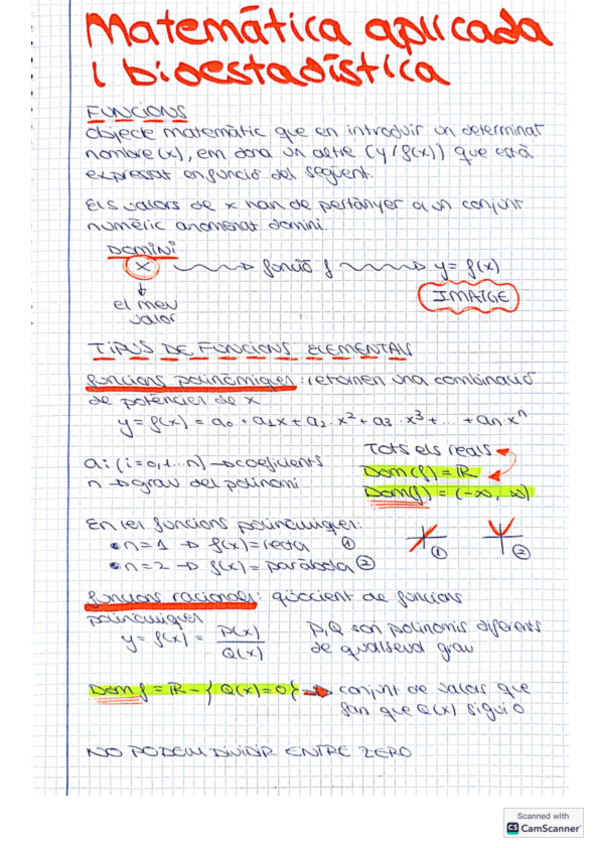 Matemática aplicada
i bioestadística
FUNCIONS
Objecte matemàtic que en introduir un determinat
nombre (x), em dona un altre (y / f(x)) que està
expressat en funció del següent.
Els valors de x han de pertànyer a un conjunt
numèric anomenat domini.
DOMINI
x → funció f → y = f(x)
IMATGE
el meu
valor
TIPUS DE FUNCIONS ELEMENTALS
funcions polinòmiques: retornen una combinació
de potències de x
y = f(x) = a0 + a1x + a2·x² + a3·x³ + ... + an·xⁿ
Tots els reals
ai (i=0,1...n) → coeficients
Dom(f) = ℝ
n → grau del polinomi
Dom(f) = (-∞, ∞)
En les funcions polinòmiques:
• n=1 → f(x) = recta ①
• n=2 → f(x) = paràbola ②
① ②
funcions racionals: quocient de funcions
polinòmiques
y = f(x) = P(x) / Q(x)
P, Q són polinomis diferents
de qualsevol grau
Dom f = ℝ - { Q(x)=0 } → conjunt de valors que
fan que Q(x) sigui 0
NO PODEM DIVIDIR ENTRE ZERO
Scanned with
CS CamScanner